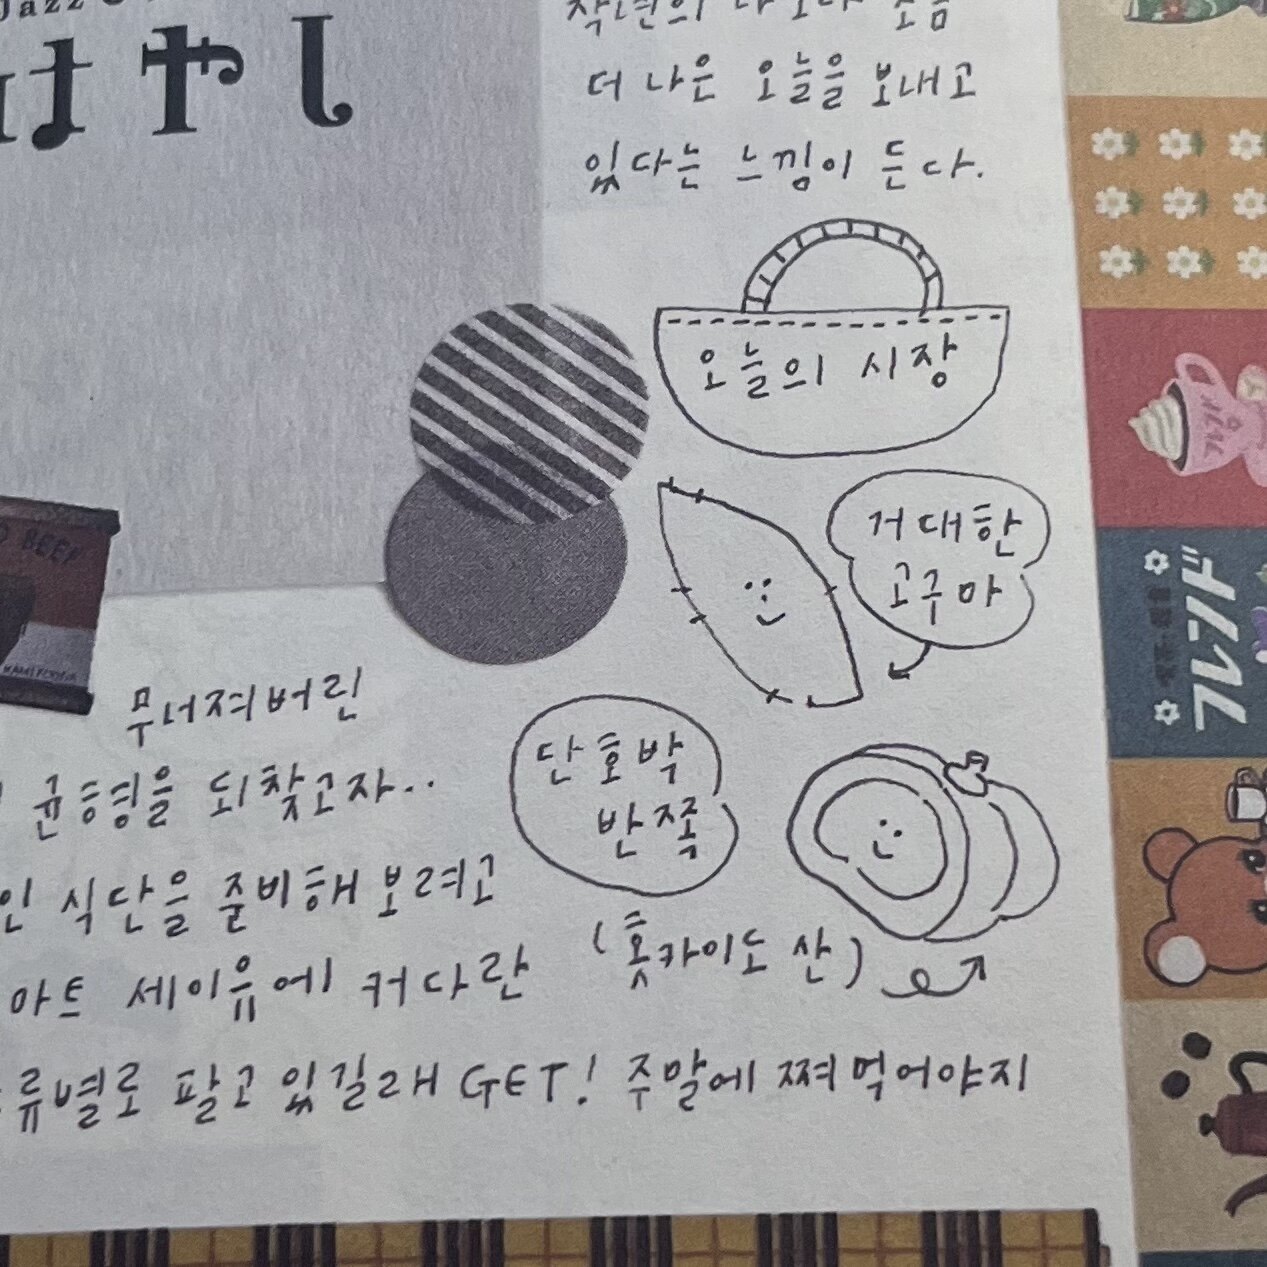 Jazz
はやし
작년의 나보다 조금
더 나은 오늘을 보내고
있다는 느낌이 든다.
오늘의 시장
거대한
고구마
BEEF
무너져버린
균형을 되찾고자..
식단을 준비해 보려고
단호박
반쪽
(홋카이도 산)
세이유에 커다란
팔고 있길래 GET! 주말에 쪄 먹어야지